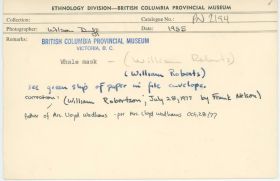 ETHNOLOGY DIVISION—BRITISH COLUMBIA PROVINCIAL MUSEUM
Collection: Catalogue No.: PN 2194
Photographer: Wilson Duff Date: 1955
Remarks: BRITISH COLUMBIA PROVINCIAL MUSEUM
VICTORIA, B. C.
Whale mask - (William Roberts)
(William Roberts)
see green slip of paper in file envelope
correction: (William Robertson, July 28, 1977 by Frank Nelson)
father of Mrs. Lloyd Wadhams - per Mrs. Lloyd Wadhams Oct 28/77